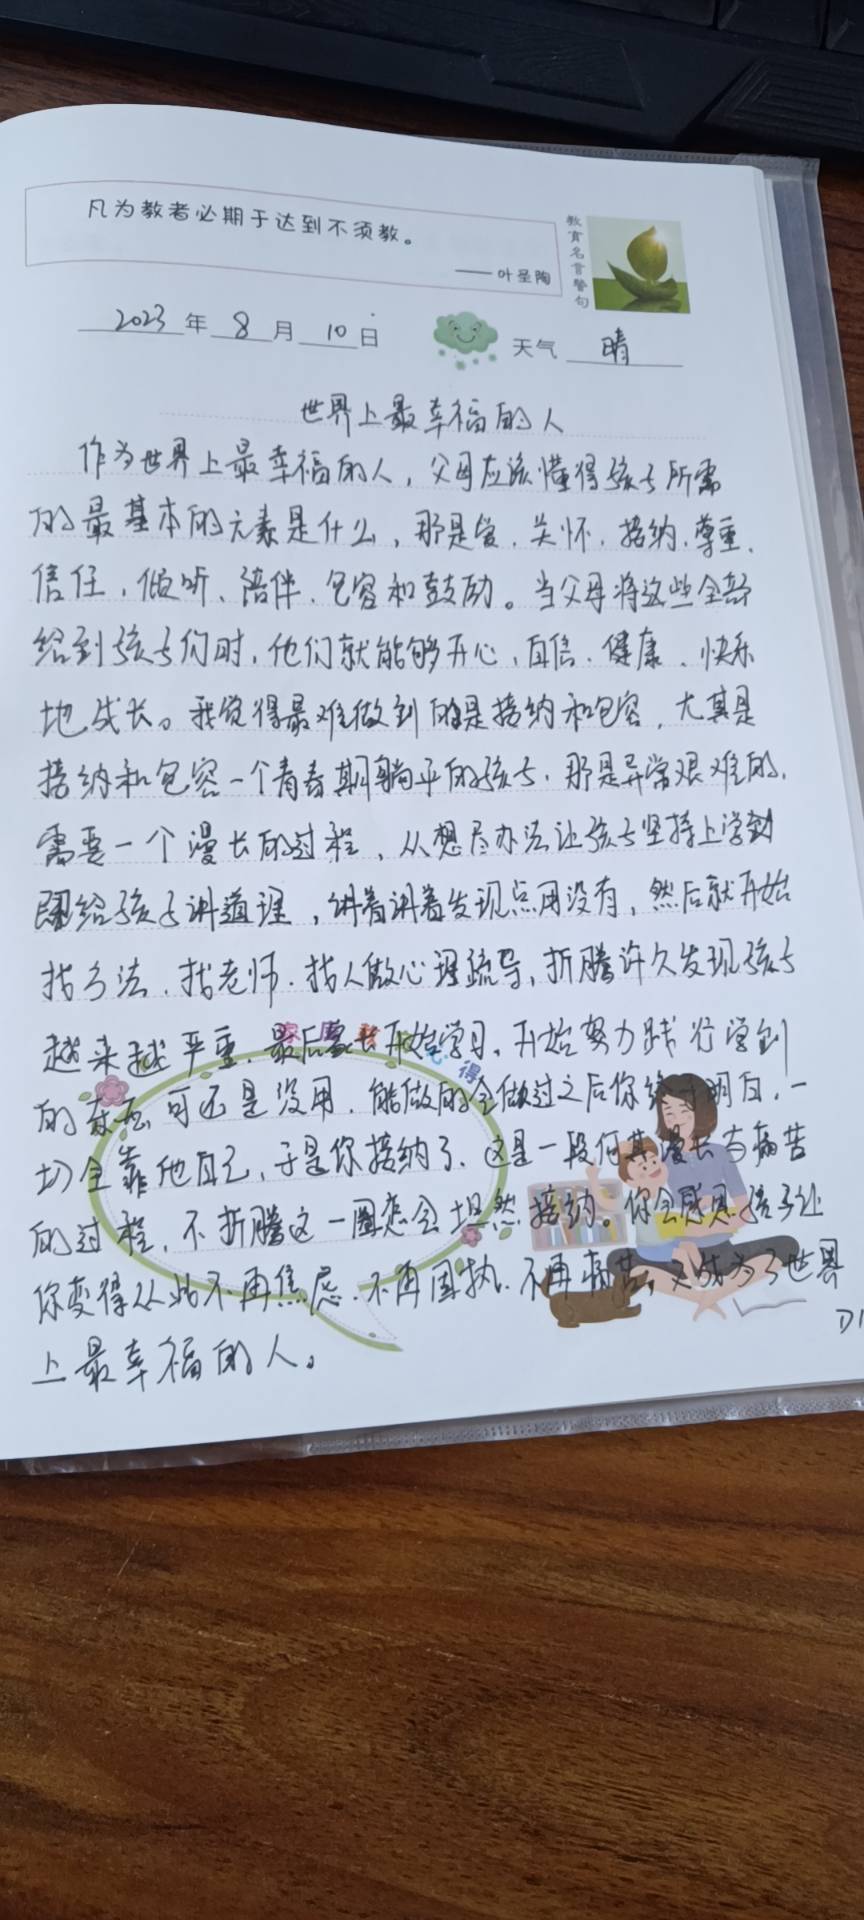 凡为教者必期于达到不须教。
——叶圣陶
教育名言警句
2023年8月10日
天气 晴
世界上最幸福的人
作为世界上最幸福的人，父母应该懂得孩子所需
的最基本的元素是什么，那是爱、关怀、接纳、尊重、
信任、倾听、陪伴、包容和鼓励。当父母将这些全部
给到孩子们时，他们就能够开心、自信、健康、快乐
地成长。我觉得最难做到的是接纳和包容，尤其是
接纳和包容一个青春期躺平的孩子，那是异常艰难的，
需要一个漫长的过程，从想尽办法让孩子坚持上学到
给孩子讲道理，讲着讲着发现点用没有，然后就开始
找方法、找老师、找人做心理疏导，折腾许久发现孩子
越来越严重，最后家长开始学习，开始努力践行学到
的东西可还是没用，能做的全做过之后你终于明白，一
切全靠他自己，于是你接纳了，这是一段何其漫长与痛苦
的过程，不折腾这一圈怎会坦然接纳。你会感恩孩子让
你变得从此不再焦虑、不再固执、不再痛苦，又成为了世界
上最幸福的人。